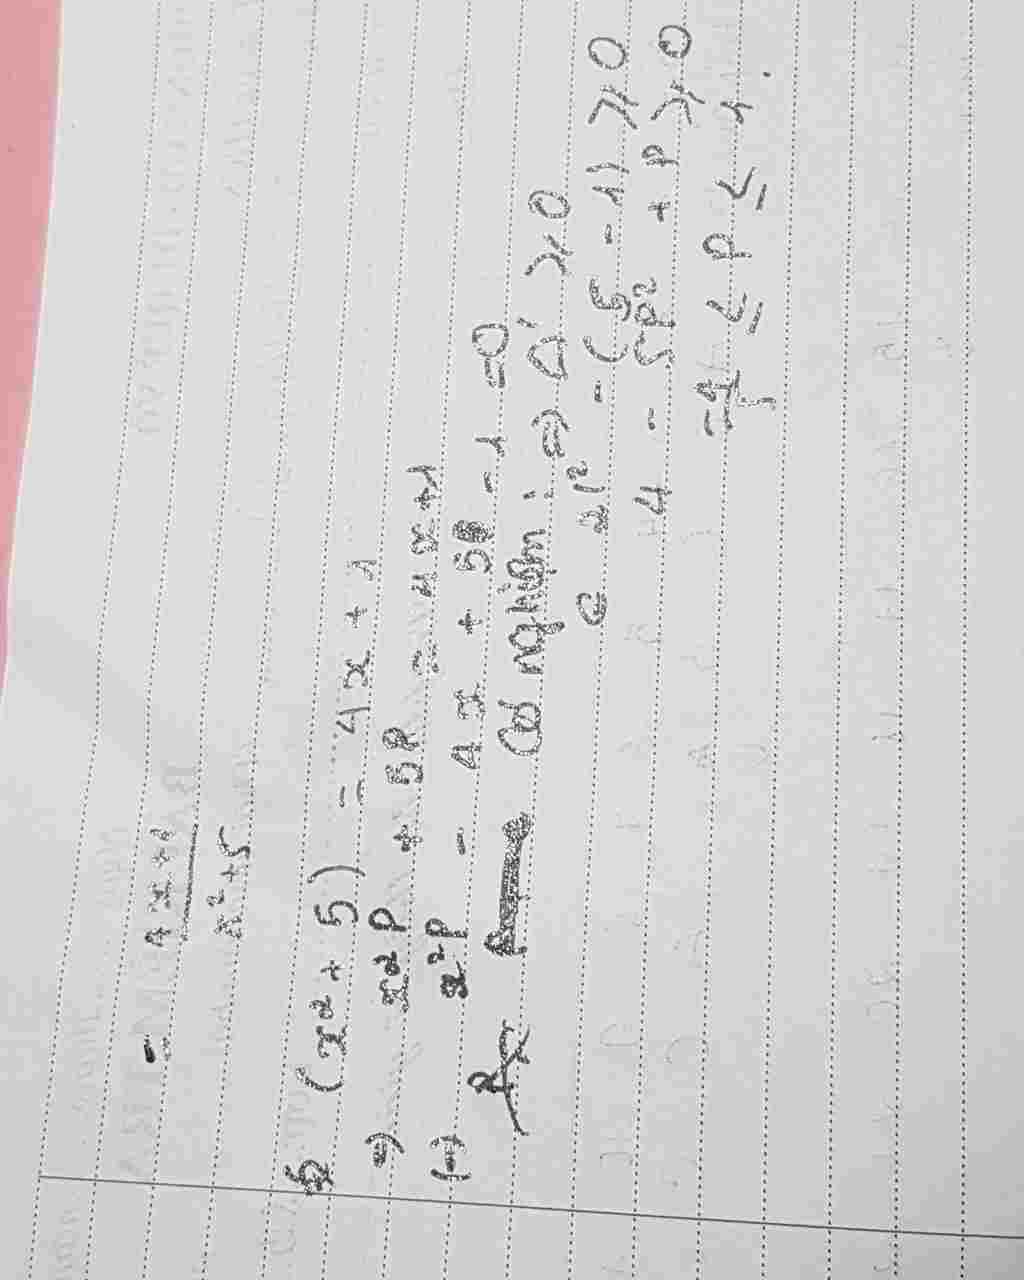 = 4x+1
x²+5
(x² + 5) = 4x + 1
=> x²P + 5P = 4x+1
(=) x²P - 4x + 5P - 1 = 0
Có nghiệm: => Δ' ≥ 0
2² - (5 - 1) ≥ 0
4 - 5P² + P ≥ 0
≤ P ≤ 1.